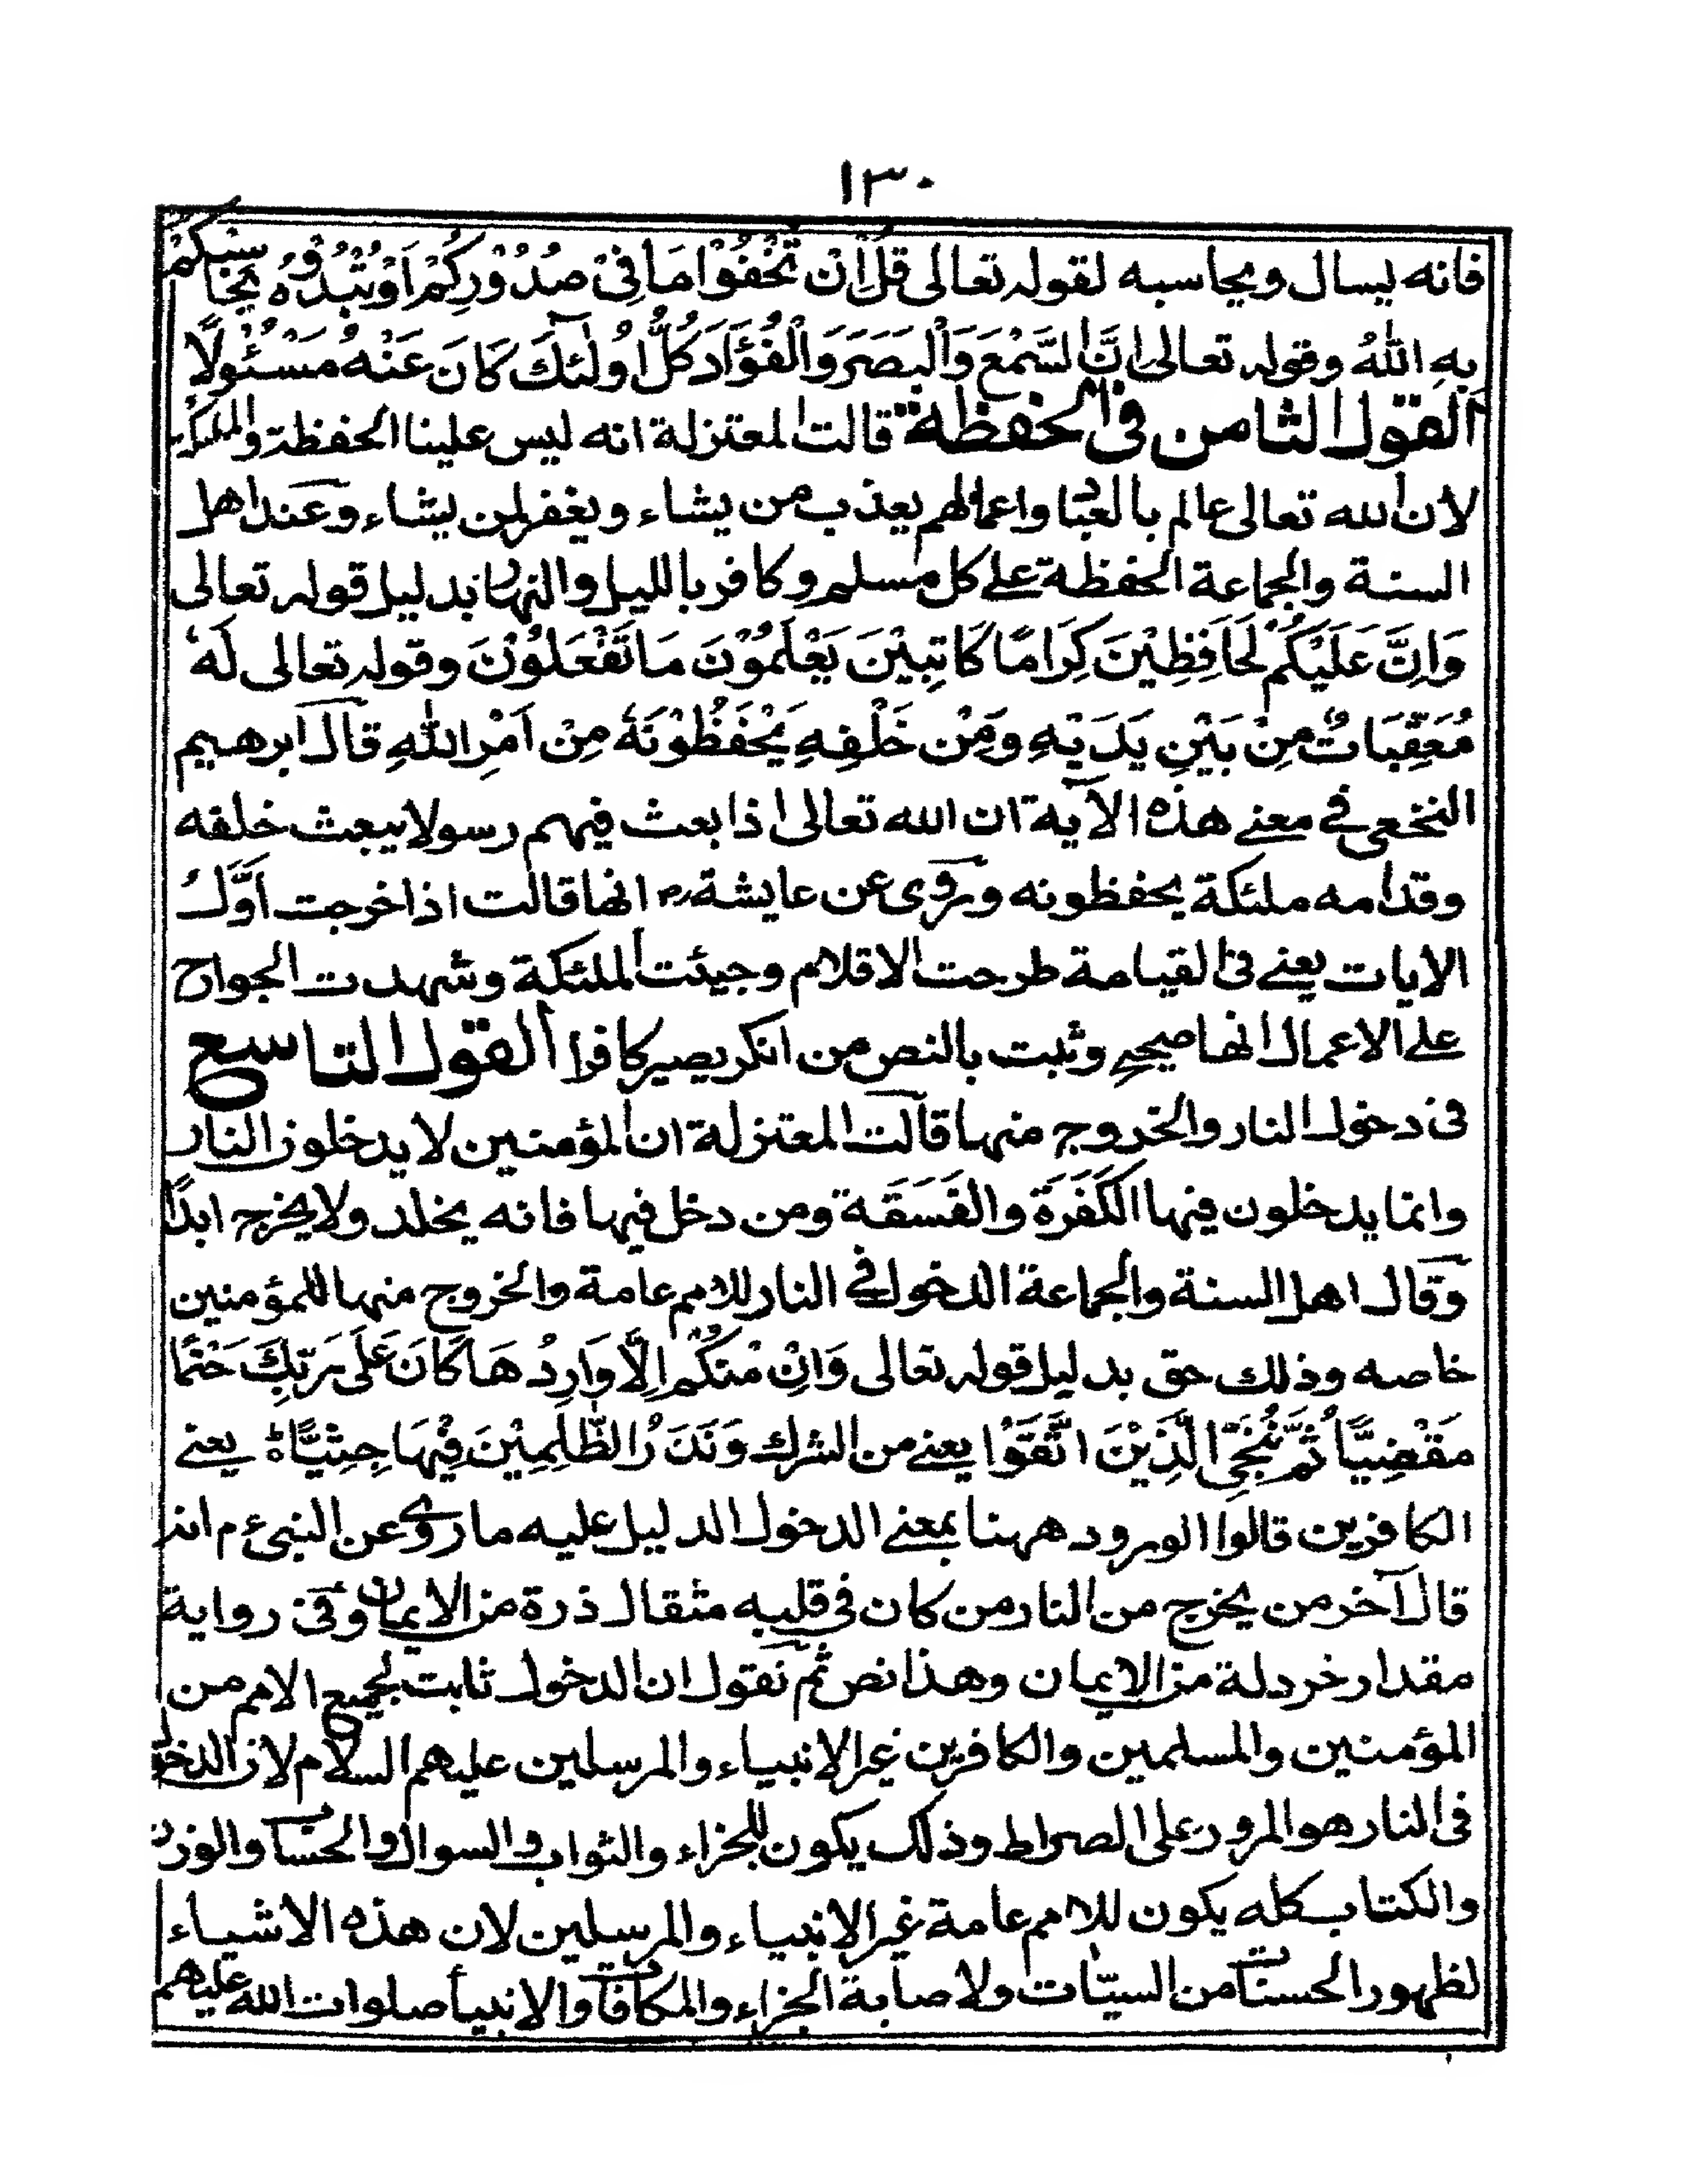 ١٣٠
فانه يسال ويحاسبه لقوله تعالى قُلْ اِنْ تُخْفُوْا مَا فِىْ صُدُوْرِكُمْ اَوْ تُبْدُوْهُ يُحَاسِبْكُمْ
بِهِ اللّٰهُ وقوله تعالى اِنَّ السَّمْعَ وَالْبَصَرَ وَالْفُؤَادَ كُلُّ اُولٰٓئِكَ كَانَ عَنْهُ مَسْئُوْلًا
القول الثامن فى الحفظة قالت المعتزلة انه ليس علينا الحفظة والملئكة
لان لله تعالى عالم بالعباد واعمالهم يعذب من يشاء ويغفر لمن يشاء وعند اهل
السنة والجماعة الحفظة على كل مسلم وكافر بالليل والنهار بدليل قوله تعالى
وَاِنَّ عَلَيْكُمْ لَحَافِظِيْنَ كِرَامًا كَاتِبِيْنَ يَعْلَمُوْنَ مَا تَفْعَلُوْنَ وقوله تعالى لَهٗ
مُعَقِّبَاتٌ مِنْ بَيْنِ يَدَيْهِ وَمِنْ خَلْفِهِ يَحْفَظُوْنَهٗ مِنْ اَمْرِ اللّٰهِ قال ابرهيم
النخعى فى معنے هذه الآية ان الله تعالى اذا بعث فيهم رسولا يبعث خلفه
وقدامه ملئكة يحفظونه وروى عن عايشة رض انها قالت اذا خرجت اَوَّلُ
الايات يعنے فى القيامة طرحت الاقلام وجيئت الملئكة وشهدت الجوارح
على الاعمال انها صحيح وثبت بالنص من انكر يصير كافرا القول التاسع
فى دخول النار والخروج منها قالت المعتزلة ان المؤمنين لا يدخلون النار
وانما يدخلون فيها الكَفَرَة والفَسَقَة ومن دخل فيها فانه يخلد ولا يخرج ابدًا
وقال اهل السنة والجماعة الدخول فى النار للامم عامة والخروج منها للمؤمنين
خاصه وذلك حق بدليل قوله تعالى وَاِنْ مِنْكُمْ اِلَّا وَارِدُهَا كَانَ عَلَى رَبِّكَ حَتْمًا
مَقْضِيًّا ثُمَّ نُنَجِّى الَّذِيْنَ اتَّقَوْا يعنے من الشرك وَنَذَرُ الظّٰلِمِيْنَ فِيْهَا جِثِيًّا ط يعنے
الكافرين قالوا الورود ههنا بمعنے الدخول الدليل عليه ما روى عن النبىء م انه
قال آخر من يخرج من النار من كان فى قلبه مثقال ذرة من الايمان وفى رواية
مقدار خردلة من الايمان وهذا نص ثم نقول ان الدخول ثابت لجميع الامم من
المؤمنين والمسلمين والكافرين غير الانبياء والمرسلين عليهم السلام لان الدخول
فى النار هو المرور على الصراط وذلك يكون للجزاء والثواب والسوال والحساب والوزن
والكتاب كله يكون للامم عامة غير الانبياء والمرسلين لان هذه الاشياء
لظهور الحسنات من السيّات ولاصابة الجزاء والمكافات والانبيأ صلوات الله عليهم